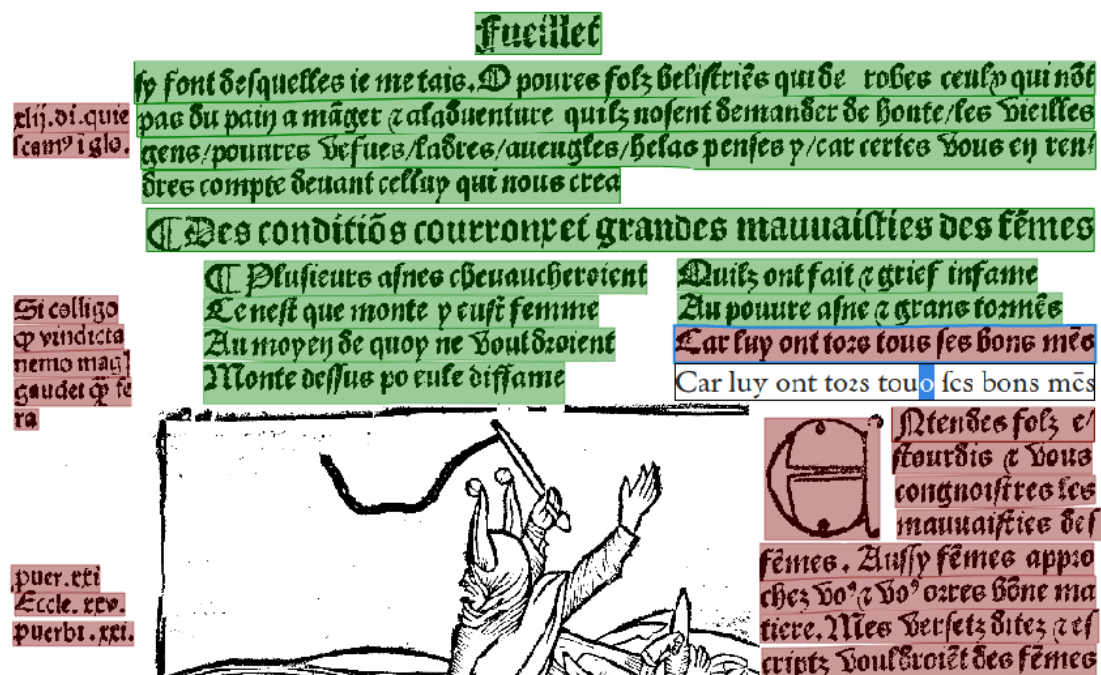 Fueillet
ſy font deſquelles ie me tais. O poures folz beliſtriẽs qui de robes ceulx qui nõt
pas du pain a mãger ⁊ a ladventure quilz noſent demander de honte/les vieilles
gens/pouures vefues/ladres/aueugles/helas penſes y/car certes vous en ren/
dres compte deuant celluy qui nous crea
¶ Des conditiõs courroux et grandes mauuaiſties des fẽmes
xlij.di.quie
ſcamꝰ i glo.
¶ Pluſieurs aſnes cheuaucheroient
Ce neſt que monte y euſt femme
Au moyen de quoy ne vouldroient
Monte deſſus po eulx diffame
Quilz ont fait ⁊ grief infame
Au pouure aſne ⁊ grans tormẽs
Car luy ont toꝛs tous ſes bons mẽs
Car luy ont toꝛs touo ſcs bons mẽs
Si colligo
ꝙ vindicta
nemo mag
gaudet ꝙ̃ fe
ra
ENtendes folz e/
ſtourdis ⁊ vous
congnoiſtres les
mauuaiſties deſ
fẽmes. Auſſy fẽmes appꝛo
chez voꝰ ⁊ voꝰ orres bõne ma
tiere. Mes verſetz ditez ⁊ eſ
criptz vouldroiẽt des fẽmes
puer.xxi
Eccle. xxv.
puerbi.xxi.